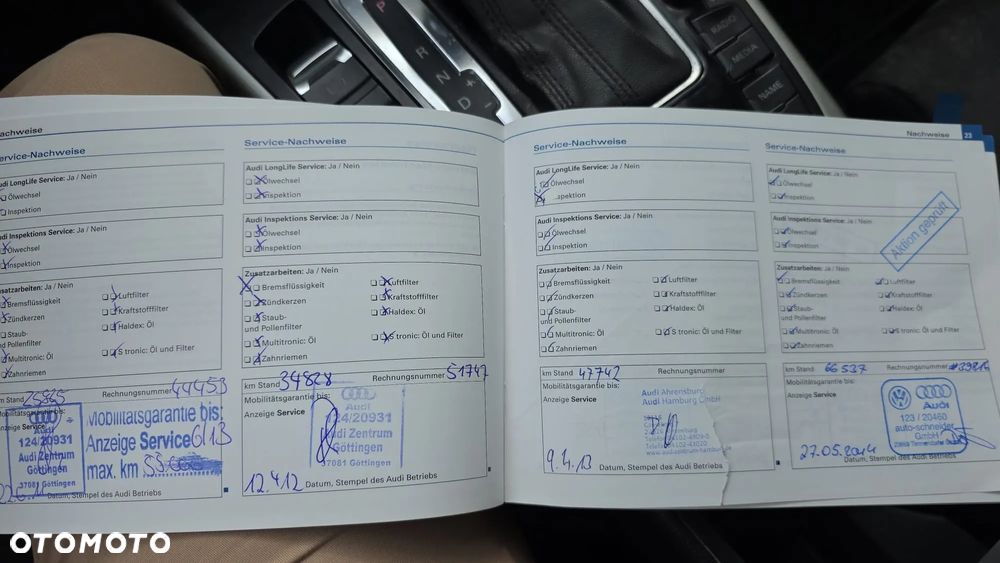 P
R
N
D
+
-
RADIO
MEDIA
NAME
achweise
ervice-Nachweise
udi LongLife Service: Ja / Nein
Ölwechsel
Inspektion
udi Inspektions Service: Ja / Nein
Ölwechsel
Inspektion
usatzarbeiten: Ja / Nein
Bremsflüssigkeit
Luftfilter
Zündkerzen
Kraftstofffilter
Staub-
und Pollenfilter
Haldex: Öl
Multitronic: Öl
S tronic: Öl und Filter
Zahnriemen
km Stand
Rechnungsnummer 44453
124/20931
Audi Zentrum
Göttingen
37081 Göttingen
Mobilitätsgarantie bis:
Anzeige Service 6/13
max. km
Datum, Stempel des Audi Betriebs
Service-Nachweise
Audi LongLife Service: Ja / Nein
Ölwechsel
Inspektion
Audi Inspektions Service: Ja / Nein
Ölwechsel
Inspektion
Zusatzarbeiten: Ja / Nein
Bremsflüssigkeit
Luftfilter
Zündkerzen
Kraftstofffilter
Staub-
und Pollenfilter
Haldex: Öl
Multitronic: Öl
S tronic: Öl und Filter
Zahnriemen
km Stand 34828
Rechnungsnummer 51747
Mobilitätsgarantie bis:
Anzeige Service
Audi
124/20931
Audi Zentrum
Göttingen
37081 Göttingen
12.4.12
Datum, Stempel des Audi Betriebs
Service-Nachweise
Audi LongLife Service: Ja / Nein
Ölwechsel
Inspektion
Audi Inspektions Service: Ja / Nein
Ölwechsel
Inspektion
Zusatzarbeiten: Ja / Nein
Bremsflüssigkeit
Luftfilter
Zündkerzen
Kraftstofffilter
Staub-
und Pollenfilter
Haldex: Öl
Multitronic: Öl
S tronic: Öl und Filter
Zahnriemen
km Stand 47742
Rechnungsnummer
Mobilitätsgarantie bis:
Anzeige Service
Audi Ahrensburg
Audi Hamburg GmbH
9.4.13
Datum, Stempel des Audi Betriebs
Nachweise 23
Service-Nachweise
Audi LongLife Service: Ja / Nein
Ölwechsel
Inspektion
Audi Inspektions Service: Ja / Nein
Ölwechsel
Inspektion
Aktion geprüft
Zusatzarbeiten: Ja / Nein
Bremsflüssigkeit
Luftfilter
Zündkerzen
Kraftstofffilter
Staub-
und Pollenfilter
Haldex: Öl
Multitronic: Öl
S tronic: Öl und Filter
Zahnriemen
km Stand 66 537
Rechnungsnummer
Mobilitätsgarantie bis:
Anzeige Service
Audi
123 / 20460
auto-schneider
GmbH
27.05.2014
Datum, Stempel des Audi Betriebs
OTOMOTO